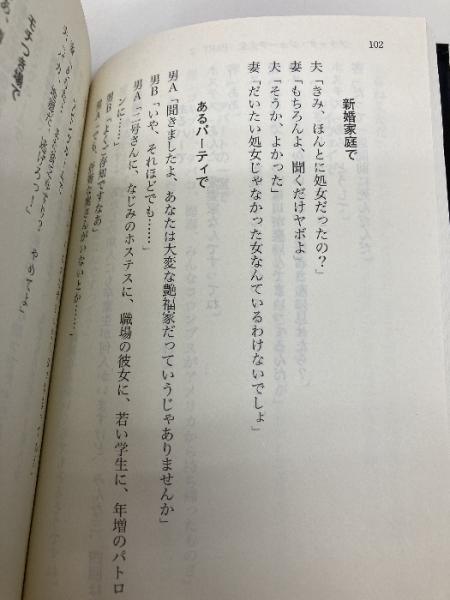 102
新婚家庭で
夫「きみ、ほんとに処女だったの？」
妻「もちろんよ、聞くだけヤボよ」
夫「そうか、よかった」
妻「だいたい処女じゃなかった女なんているわけないでしょ」
あるパーティで
男A「聞きましたよ、あなたは大変な艶福家だっていうじゃありませんか」
男B「いや、それほどでも……」
男A「二号さんに、なじみのホステスに、職場の彼女に、若い学生に、年増のパトロ
ンに……」
男B「よくご存知ですなあ」
男A「でも、
奥さんがいないとか……」
逃げろっ！
やめてよ」